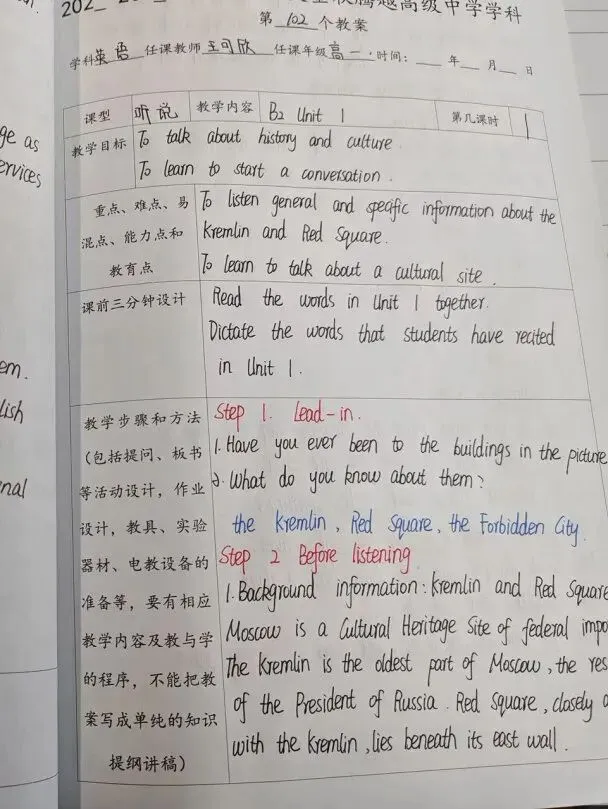 202
腾越高级中学学科
第 102 个教案
学科 英语 任课教师 王可欣 任课年级 高一 时间: 年 月 日
课型 听说 教学内容 B2 Unit 1 第几课时 1
教学目标
To talk about history and culture.
To learn to start a conversation.
重点、难点、易
混点、能力点和
教育点
To listen general and specific information about the
Kremlin and Red Square.
To learn to talk about a cultural site.
课前三分钟设计
Read the words in Unit 1 together.
Dictate the words that students have recited
in Unit 1.
教学步骤和方法
(包括提问、板书
等活动设计,作业
设计,教具、实验
器材、电教设备的
准备等,要有相应
教学内容及教与学
的程序,不能把教
案写成单纯的知识
提纲讲稿)
Step 1. Lead-in.
1. Have you ever been to the buildings in the picture
2. What do you know about them?
the Kremlin, Red Square, the Forbidden City.
Step 2 Before listening.
1. Background information: Kremlin and Red Square
Moscow is a Cultural Heritage Site of federal impo
The Kremlin is the oldest part of Moscow, the res
of the President of Russia. Red Square, closely
with the Kremlin, lies beneath its east wall.
ge as
ervices
em.
lish
nal